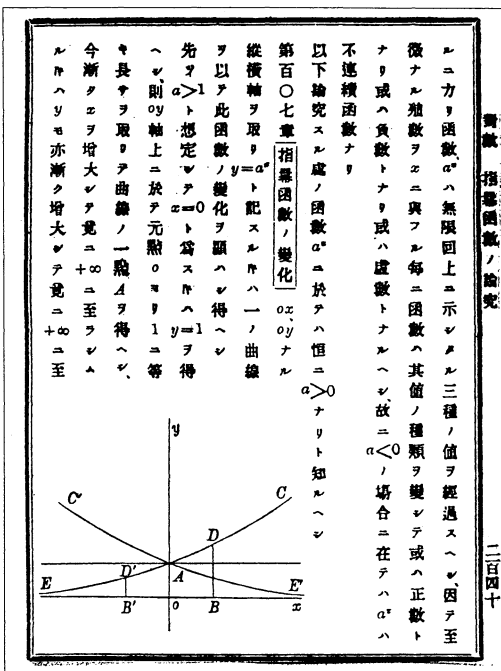 對數 指數函數ノ論究
二百四十
ルニ方リ函數aˣハ無限回上ニ示シタル三種ノ値ヲ經過スヘシ、因テ至
微ナル殖數ヲxニ與フル每ニ函數ハ其値ノ種類ヲ變シテ或ハ正數ト
ナリ或ハ負數トナリ或ハ虛數トナルヘシ、故ニa<0ノ塲合ニ在テハaˣハ
不連續函數ナリ
以下論究スル處ノ函數aˣニ於テハ恒ニa>0ナリト知ルヘシ
第百〇七章 指數函數ノ變化 ox, oyナル
縱橫軸ヲ取リy=aˣト記スル𪜈ハ一ノ曲線
ヲ以テ此函數ノ變化ヲ顯ハシ得ヘシ
先ツa>1ト想定シテx=0ト爲ス𪜈ハy=1ヲ得
ヘシ、則oy軸上ニ於テ元點oヨリ1ニ等
キ長サヲ取リテ曲線ノ一點Aヲ得ヘシ、
今漸クxヲ增大シテ竟ニ+∞ニ至ラシム
ル𪜈ハyモ亦漸ク增大シテ竟ニ+∞ニ至
y
C'
C
D
D'
A
E
E'
B'
o
B
x